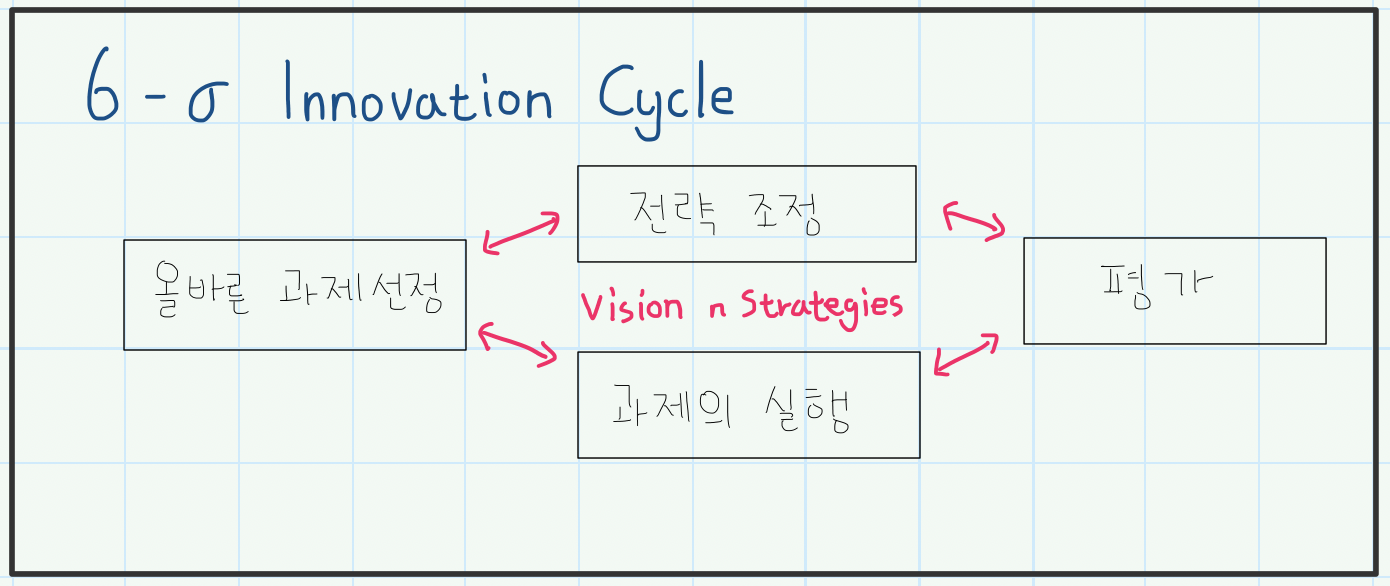 6-σ Innovation Cycle
전략 조정
올바른 과제선정
평가
Vision n Strategies
과제의 실행